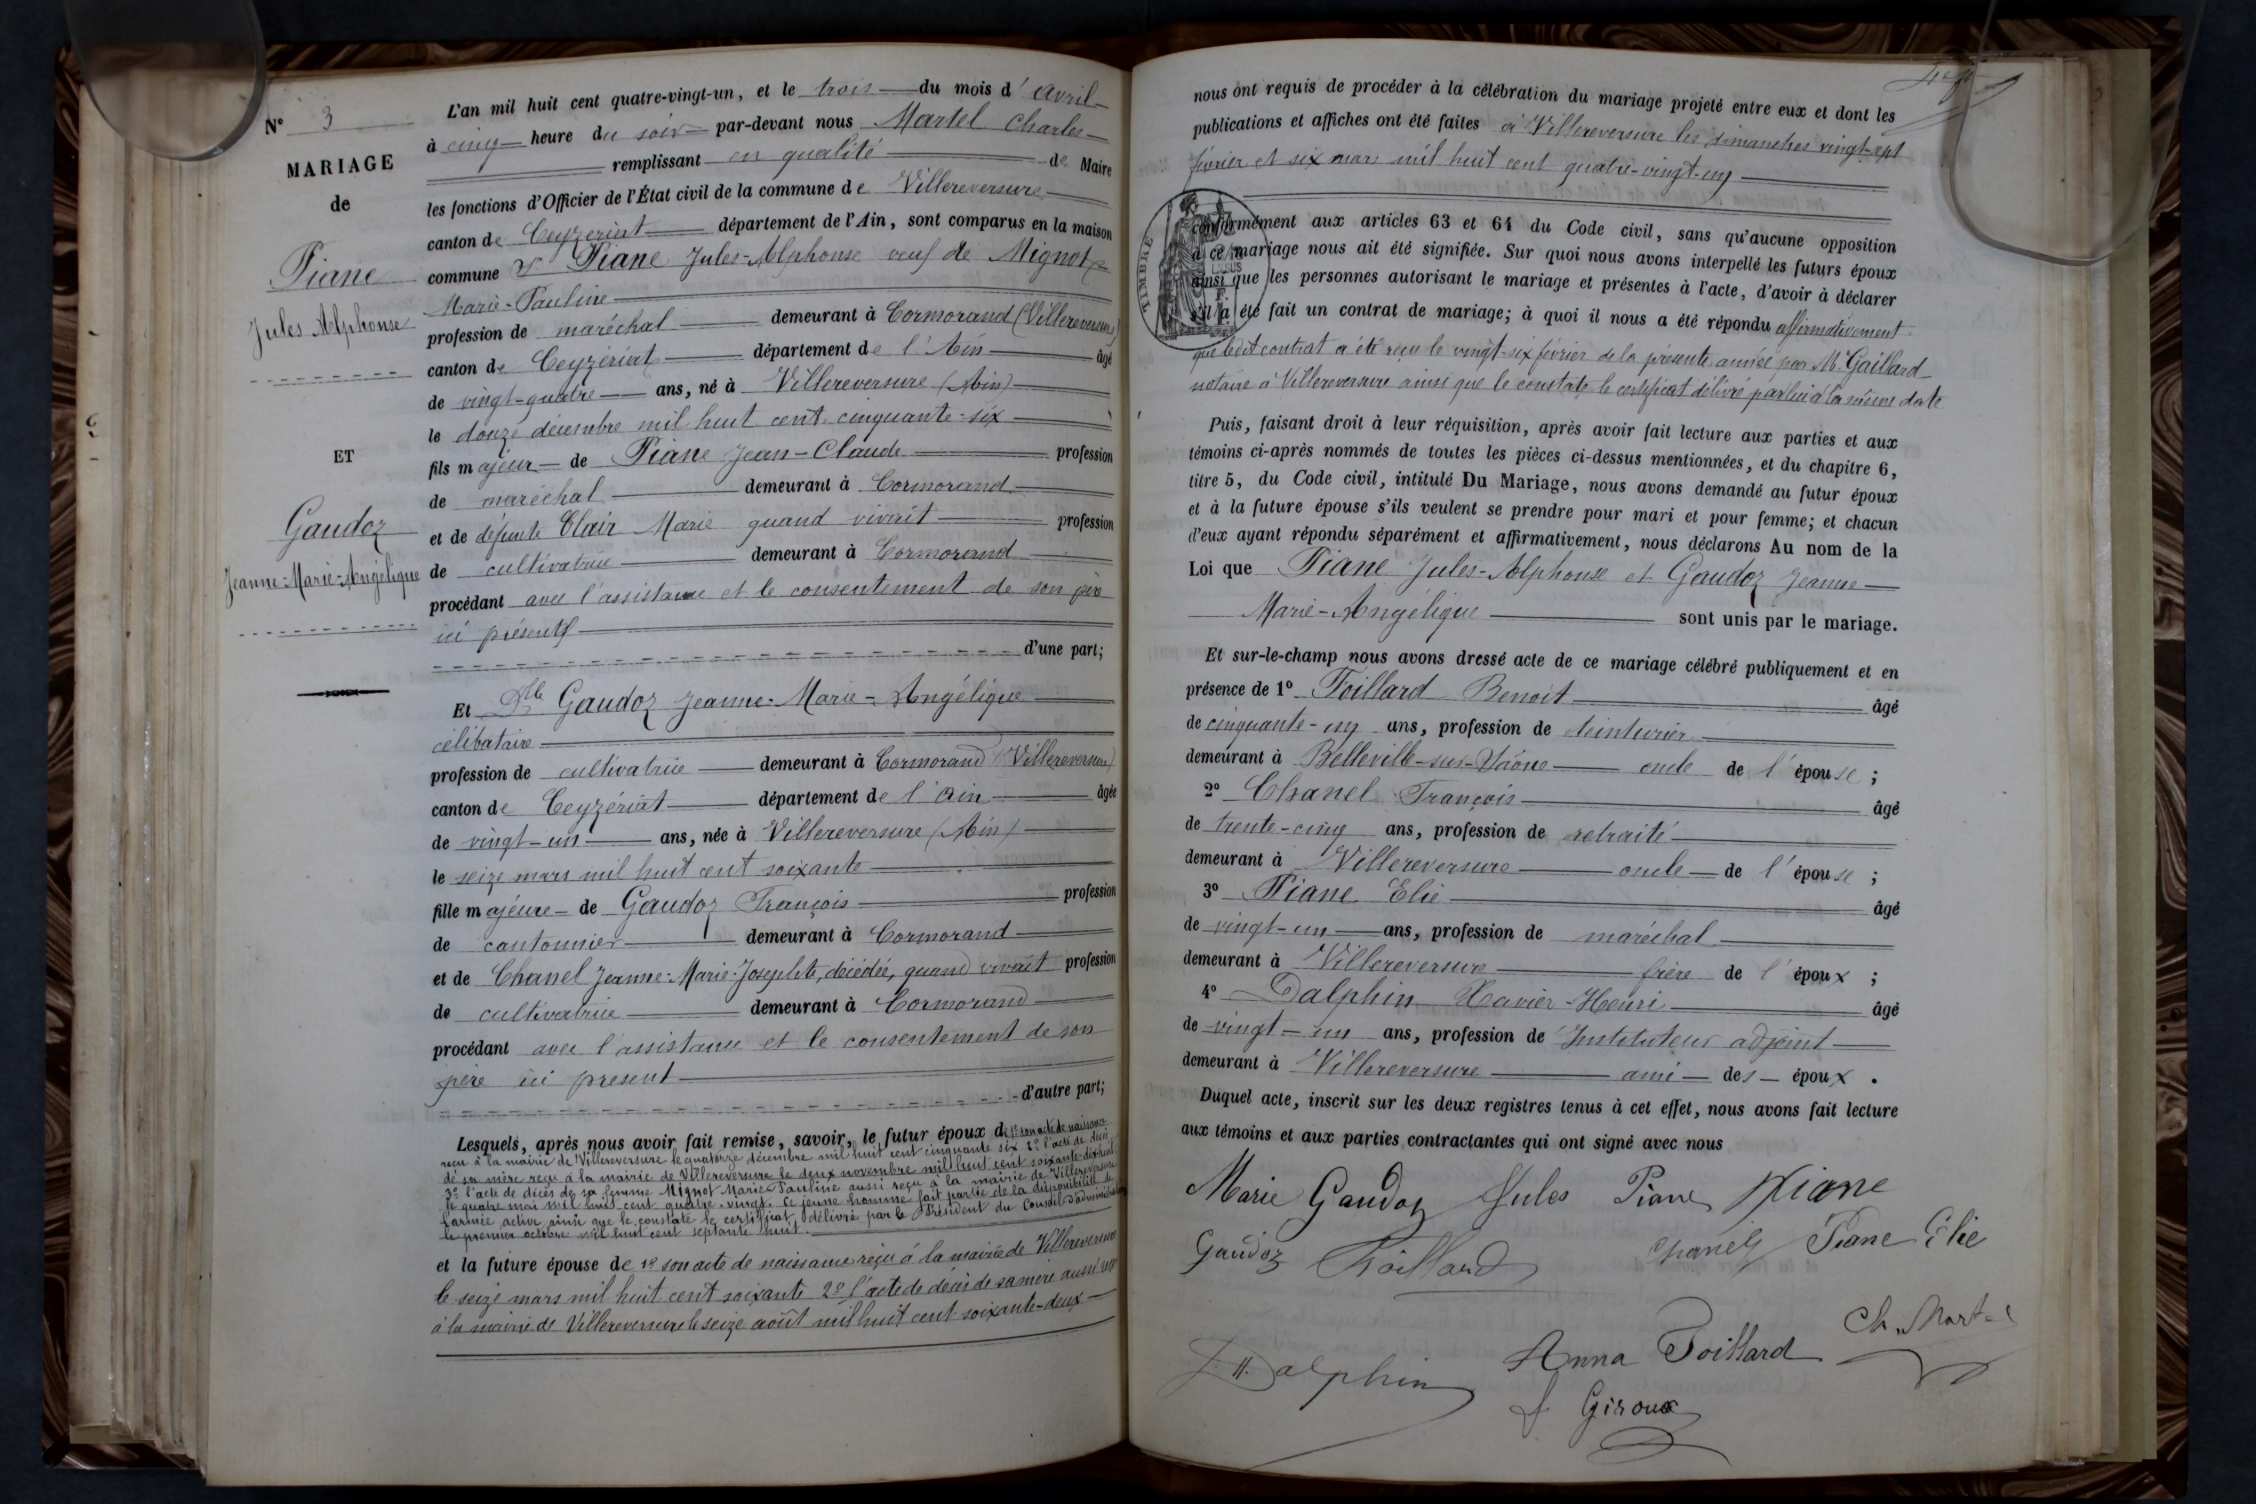 N° 3
MARIAGE
de
Piane
Jules Alphonse
ET
Gaudoz
Jeanne-Marie-Angélique
L'an mil huit cent quatre-vingt-un, et le trois du mois d'avril
à cinq heure du soir par-devant nous Martel Charles
remplissant en qualité de Maire
les fonctions d'Officier de l'État civil de la commune de Villereversure
canton de Ceyzeriat département de l'Ain, sont comparus en la maison
commune Sr Piane Jules-Alphonse veuf de Mignot
Marie-Pauline
profession de maréchal demeurant à Cormorand (Villereversure)
canton de Ceyzériat département de l'Ain âgé
de vingt-quatre ans, né à Villereversure (Ain)
le douze décembre mil huit cent cinquante-six
fils majeur de Piane Jean-Claude profession
de maréchal demeurant à Cormorand
et de défunte Clair Marie quand vivait profession
de cultivatrice demeurant à Cormorand
procédant avec l'assistance et le consentement de son père
ici présent
d'une part;
Et Dlle Gaudoz Jeanne-Marie-Angélique
célibataire
profession de cultivatrice demeurant à Cormorand (Villereversure)
canton de Ceyzériat département de l'Ain âgée
de vingt-un ans, née à Villereversure (Ain)
le seize mars mil huit cent soixante
fille majeure de Gaudoz François profession
de cantonnier demeurant à Cormorand
et de Chanel Jeanne-Marie-Josephte, décédée, quand vivait profession
de cultivatrice demeurant à Cormorand
procédant avec l'assistance et le consentement de son
père ici present
d'autre part;
Lesquels, après nous avoir fait remise, savoir, le futur époux de 1° son acte de naissance
reçu à la mairie de Villereversure le quatorze décembre mil huit cent cinquante six 2° l'acte de décès
de sa mère reçu à la mairie de Villereversure le deux novembre mil huit cent soixante-dix-huit
3° l'acte de décès de sa femme Mignot Marie Pauline aussi reçu à la mairie de Villereversure
le quatre mai mil huit cent quatre-vingt. Ce jeune homme fait partie de la disponibilité de
l'armée active ainsi que le constate le certificat délivré par le Président du Conseil d'administration
le premier octobre mil huit cent septante huit.
et la future épouse de 1° son acte de naissance reçu à la mairie de Villereversure
le seize mars mil huit cent soixante 2° l'acte de décès de sa mère aussi reçu
à la mairie de Villereversure le seize août mil huit cent soixante-deux
nous ont requis de procéder à la célébration du mariage projeté entre eux et dont les
publications et affiches ont été faites à Villereversure les dimanches vingt-sept
février et six mars mil huit cent quatre-vingt-un
TIMBRE
conformément aux articles 63 et 64 du Code civil, sans qu'aucune opposition
à ce mariage nous ait été signifiée. Sur quoi nous avons interpellé les futurs époux
ainsi que les personnes autorisant le mariage et présentes à l'acte, d'avoir à déclarer
s'il a été fait un contrat de mariage; à quoi il nous a été répondu affirmativement
que ledit contrat a été reçu le vingt-six février de la présente année par Me Gaillard
notaire à Villereversure ainsi que le constate le certificat délivré par lui à la même date
Puis, faisant droit à leur réquisition, après avoir fait lecture aux parties et aux
témoins ci-après nommés de toutes les pièces ci-dessus mentionnées, et du chapitre 6,
titre 5, du Code civil, intitulé Du Mariage, nous avons demandé au futur époux
et à la future épouse s'ils veulent se prendre pour mari et pour femme; et chacun
d'eux ayant répondu séparément et affirmativement, nous déclarons Au nom de la
Loi que Piane Jules-Alphonse et Gaudoz Jeanne
Marie-Angélique sont unis par le mariage.
Et sur-le-champ nous avons dressé acte de ce mariage célébré publiquement et en
présence de 1° Foillard Benoit âgé
de cinquante-un ans, profession de teinturier
demeurant à Belleville-sur-Saône oncle de l'épouse;
2° Chanel François âgé
de trente-cinq ans, profession de retraité
demeurant à Villereversure oncle de l'épouse;
3° Piane Elie âgé
de vingt-un ans, profession de maréchal
demeurant à Villereversure frère de l'époux;
4° Dalphin Xavier-Henri âgé
de vingt-un ans, profession de Instituteur adjoint
demeurant à Villereversure ami des époux.
Duquel acte, inscrit sur les deux registres tenus à cet effet, nous avons fait lecture
aux témoins et aux parties contractantes qui ont signé avec nous
Marie Gaudoz Jules Piane Piane
Gaudoz Foillard Chanel Piane Elie
Ch. Martel
H. Dalphin Anna Foillard
Giroux